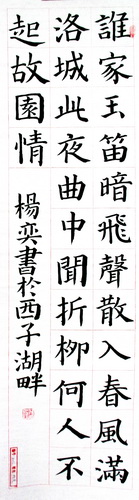 誰家玉笛暗飛聲散入春風滿
洛城此夜曲中聞折柳何人不
起故園情
楊奕書於西子湖畔